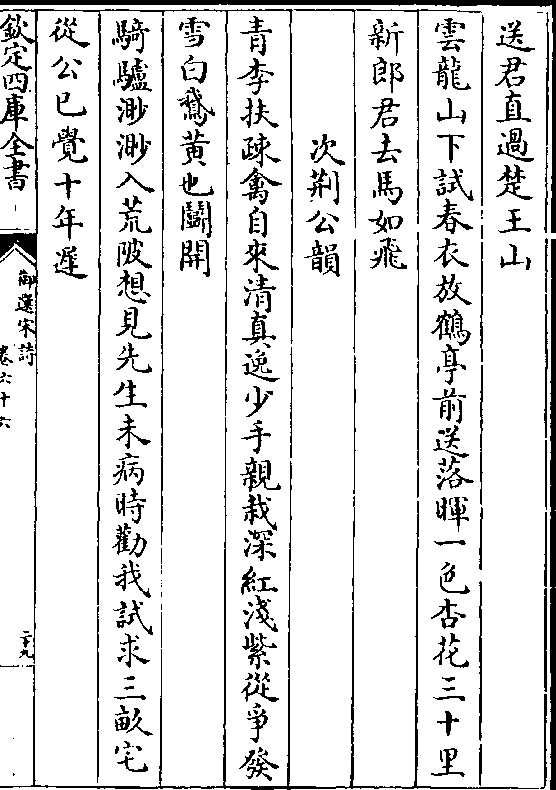 送君直過楚王山
雲龍山下試春衣放鶴亭前送落暉一色杏花三十里
新郎君去馬如飛
次荆公韻
青李扶疎禽自來清真逸少手親栽深紅淺紫從爭發
雪白鵝黃也鬬開
騎驢渺渺入荒陂想見先生未病時勸我試求三畝宅
從公已覺十年遲
欽定四庫全書
御選宋詩
卷六十六
二十九